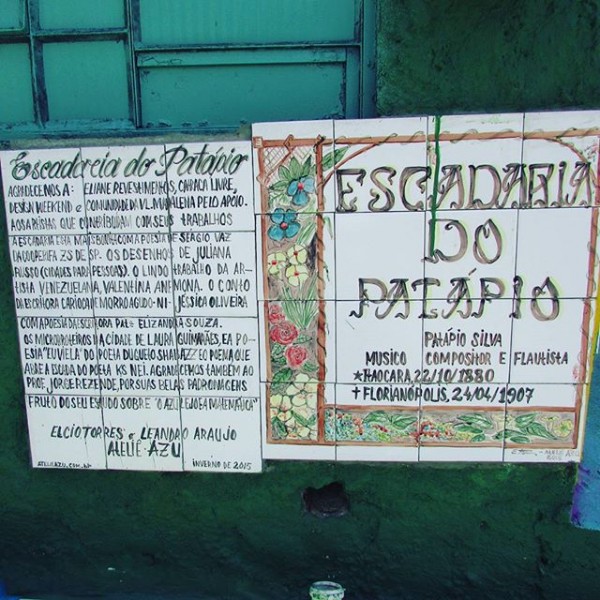 Escadaria do Patápio
AGRADECEMOS A: ELIANE REVESTIMENTOS, CARACA LIVRE,
DESIGN WEEKEND e COMUNIDADE DA VL. MADALENA PELO APÓIO.
AOS ARTISTAS QUE CONTRIBUIRAM COM SEUS TRABALHOS
A ESCADARIA FICA MAIS COM A POESIA DE SÉRGIO VAZ
DA COOPERIFA ZS DE SP. OS DESENHOS DE JULIANA
RUSSO (CIDADES PARA PESSOAS). O LINDO TRABALHO DA AR-
TISTA VENEZUELANA, VALENTINA ANEMONA. O CONTO
DA ESCRITORA CARIOCA DE MORRO AGUDO-NI-JÉSSICA OLIVEIRA
COM A POESIA DA ESCRITORA ELIZANDRA SOUZA.
OS MICROROTEIROS DA CIDADE DE LAURA GUIMARÃES, E A PO-
ESIA "EU VIELA" DO POETA DUGUETO SHABAZZ E O POEMA QUE
ABRE A ESCADA DO POETA KS NEI. AGRADECEMOS TAMBÉM AO
PROF. JORGE REZENDE, POR SUAS BELAS PADRONAGENS
FRUTO DO SEU ESTUDO SOBRE "O AZULEJO E A MATEMÁTICA"
ELCIO TORRES e LEANDRO ARAUJO
ATELIÊ AZU
INVERNO DE 2015
ESCADARIA
DO
PATÁPIO
PATÁPIO SILVA
MUSICO COMPOSITOR E FLAUTISTA
★ITAOCARA, 22/10/1880
✝FLORIANÓPOLIS, 24/04/1907